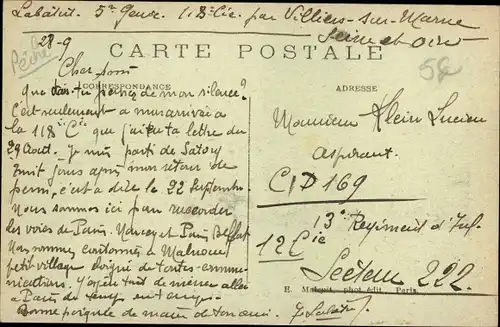 Labatut. 5e Genie. 118e Cie. par Villiers-sur-Marne
Seine et Oise
Pêche
28-9
CARTE POSTALE
58
CORRESPONDANCE
ADRESSE
Cher ami
que dois-tu penser de mon silence?
C'est seulement à mon arrivée à
la 118e Cie que j'ai eu ta lettre du
29 Août. Je suis parti de Satory
huit jours après mon retour de
perm, c'est à dire le 22 Septembre.
Nous sommes ici pour raccorder
les voies de Paris-Nancy et Paris Belfort
Nous sommes cantonnés à Malnoue,
petit village éloigné de toutes commu-
nications. J'espère tout de même aller
à Paris de temps en temps.
Bonne poignée de main de ton ami.
Labatut
Monsieur Klein Lucien
Aspirant.
CID 169
13e Régiment d'Inf.
12 Cie
Secteur 222.
E. Malcuit, phot. édit. Paris.